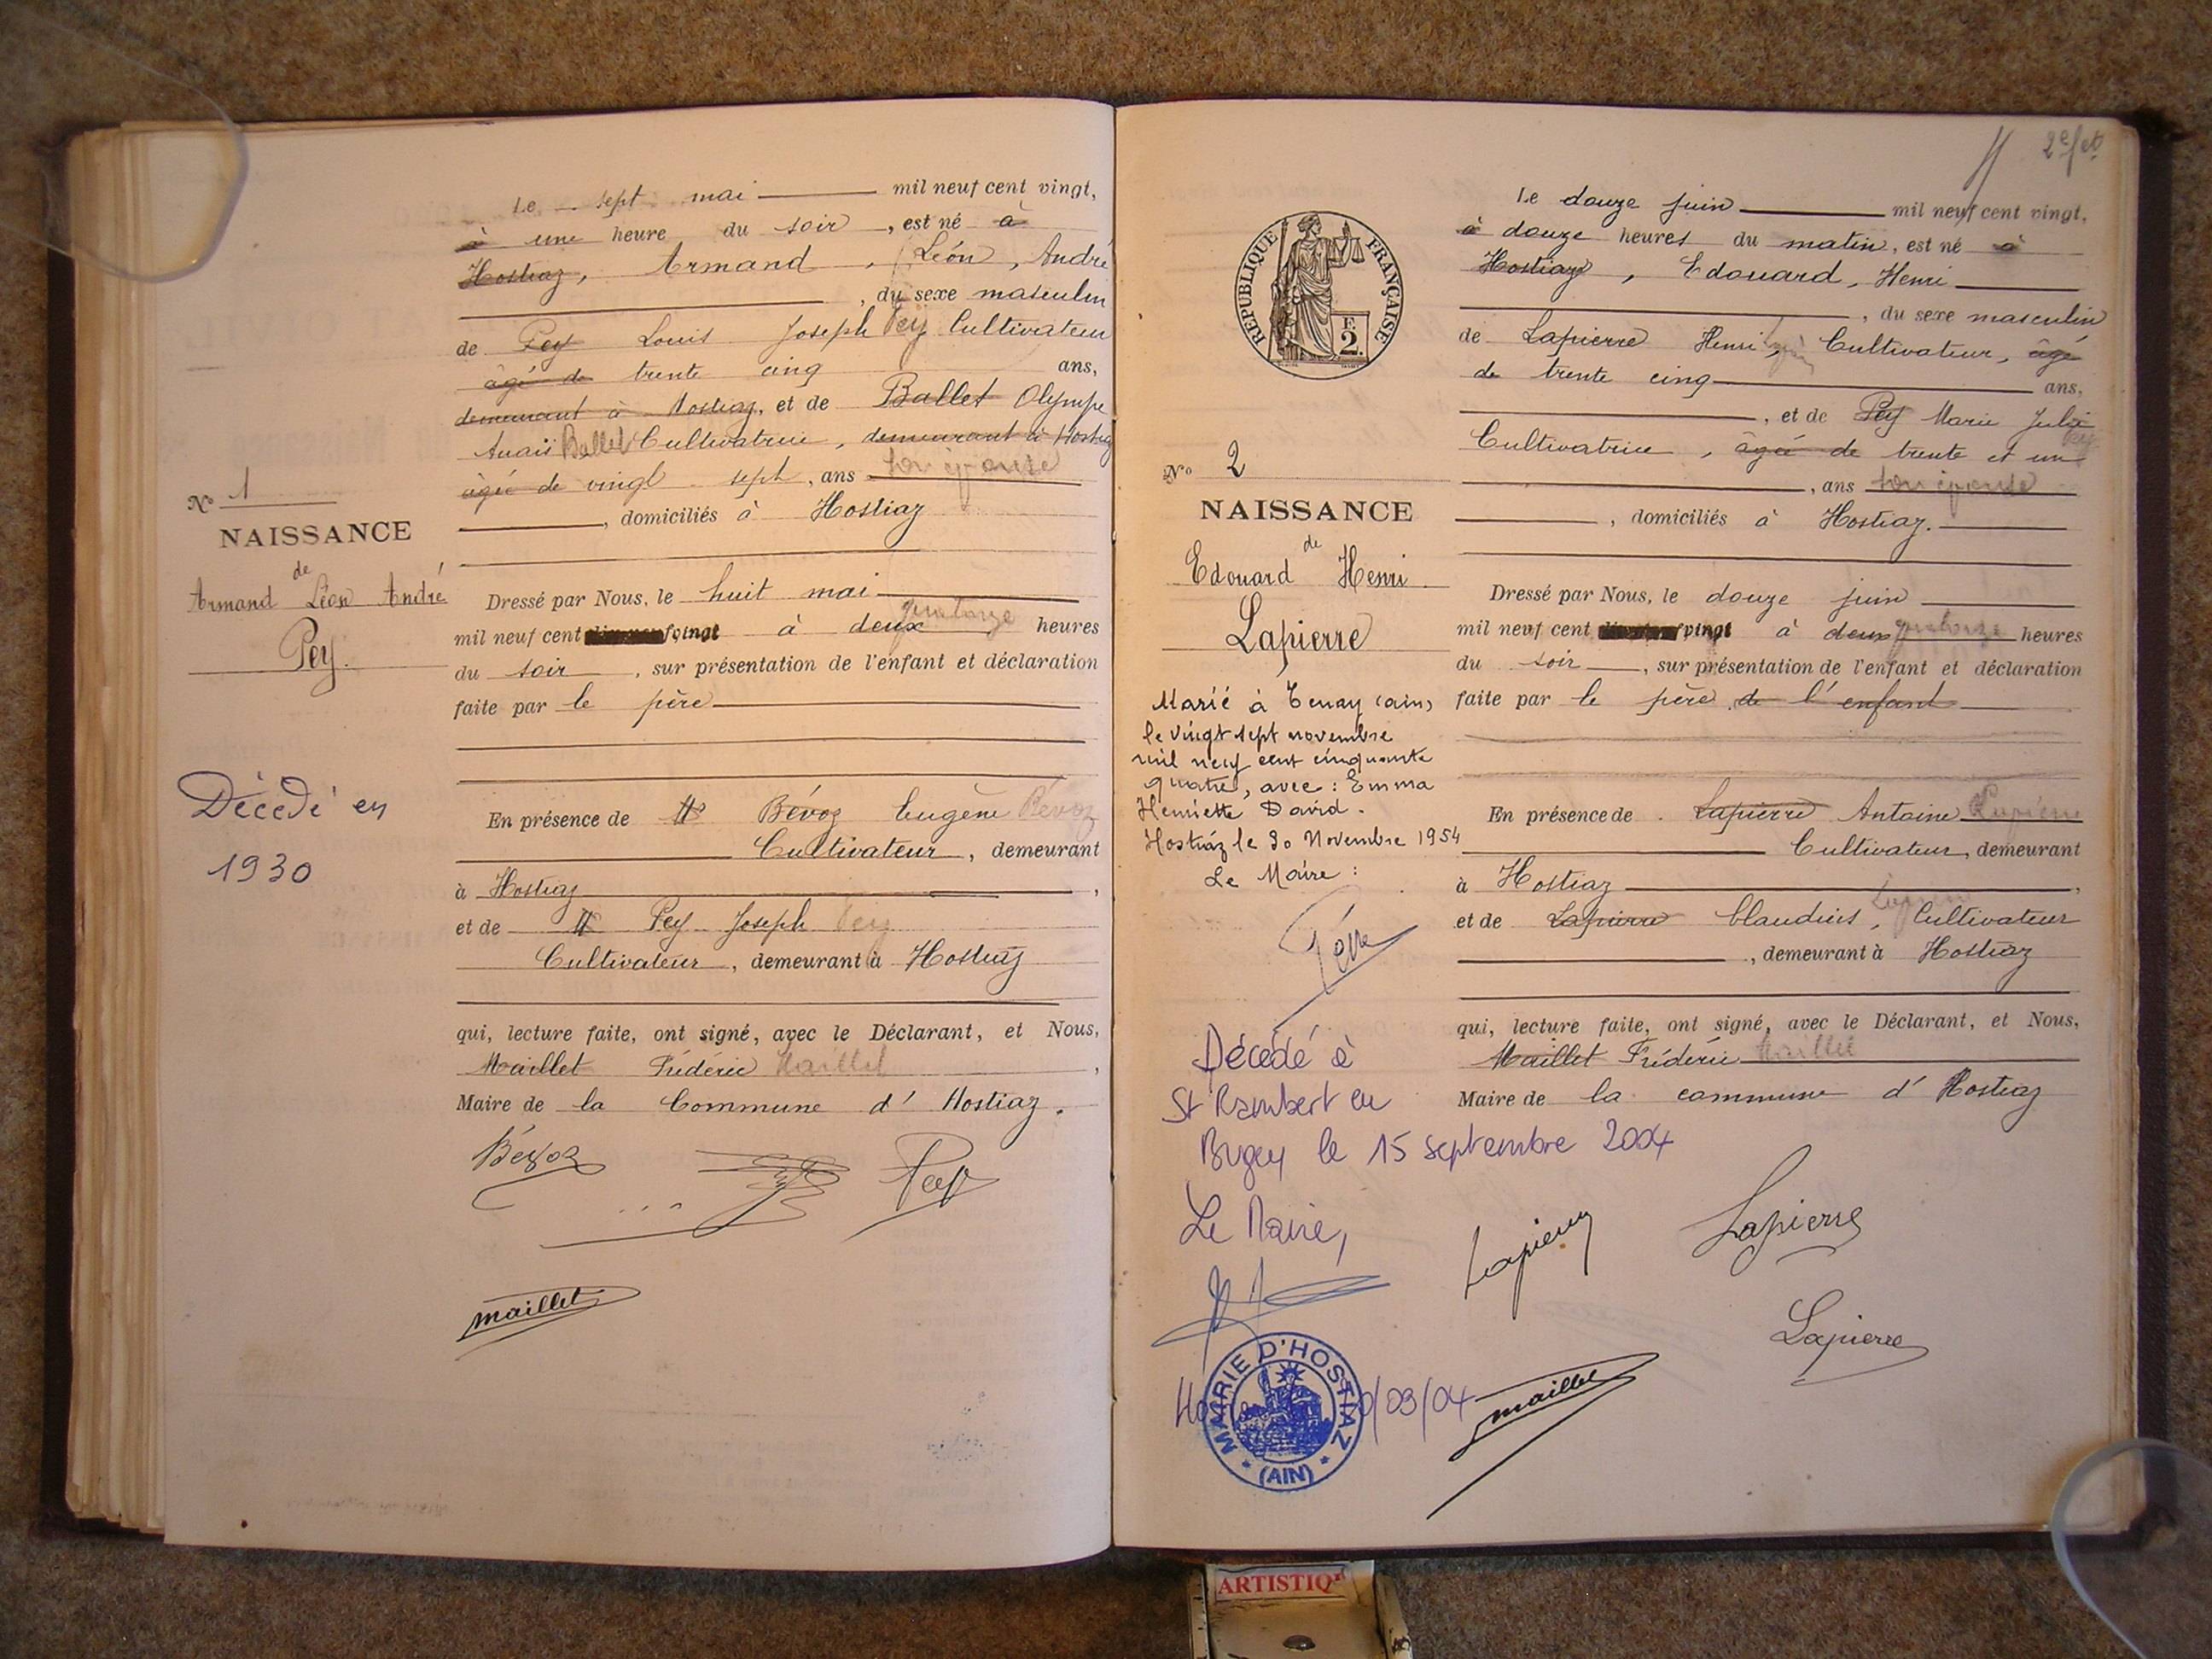 Le sept mai mil neuf cent vingt,
à une heure du soir, est né à
Hostiaz, Armand, Léon, André
, du sexe masculin
de Pey Louis Joseph Pey Cultivateur
âgé de trente cinq ans,
demeurant à Hostiaz, et de Ballet Olympe
Anaïs Ballet Cultivatrice, demeurant à Hostiaz
âgée de vingt sept, ans son épouse
, domiciliés à Hostiaz
No 1
NAISSANCE
de
Armand Léon André
Pey.
Dressé par Nous, le huit mai
mil neuf cent vingt à deux quatorze heures
du soir, sur présentation de l'enfant et déclaration
faite par le père
Décédé en
1930
En présence de Mr Bévoz Eugène Bévoz
Cultivateur, demeurant
à Hostiaz,
et de Mr Pey Joseph Pey
Cultivateur, demeurant à Hostiaz
qui, lecture faite, ont signé, avec le Déclarant, et Nous,
Maillet Frédéric Maillet,
Maire de la Commune d' Hostiaz.
Bévoz
Pey
maillet
2e fet
REPUBLIQUE FRANÇAISE
F.
2.
Le douze juin mil neuf cent vingt,
à douze heures du matin, est né à
Hostiaz, Edouard, Henri
, du sexe masculin
de Lapierre Henri, Cultivateur, âgé
de trente cinq ans,
, et de Pey Marie Julie Pey
Cultivatrice, âgée de trente et un
, ans son épouse
, domiciliés à Hostiaz.
No 2
NAISSANCE
de
Edouard Henri
Lapierre
Dressé par Nous, le douze juin
mil neuf cent vingt à deux quatorze heures
du soir, sur présentation de l'enfant et déclaration
faite par le père de l'enfant
Marié à Tenay (ain)
le vingt sept novembre
mil neuf cent cinquante
quatre, avec : Emma
Henriette David.
Hostiaz le 30 Novembre 1954
Le Maire :
En présence de Lapierre Antoine Lapierre
Cultivateur, demeurant
à Hostiaz,
et de Lapierre Claudius, Lapierre Cultivateur
, demeurant à Hostiaz
qui, lecture faite, ont signé, avec le Déclarant, et Nous,
Maillet Frédéric Maillet
Maire de la commune d' Hostiaz
Décédé à
St Rambert en
Bugey le 15 septembre 2004
Le Maire,
Lapierre
Lapierre
Lapierre
maillet
/09/04
MAIRIE D'HOSTIAZ
(AIN)
ARTISTIQ